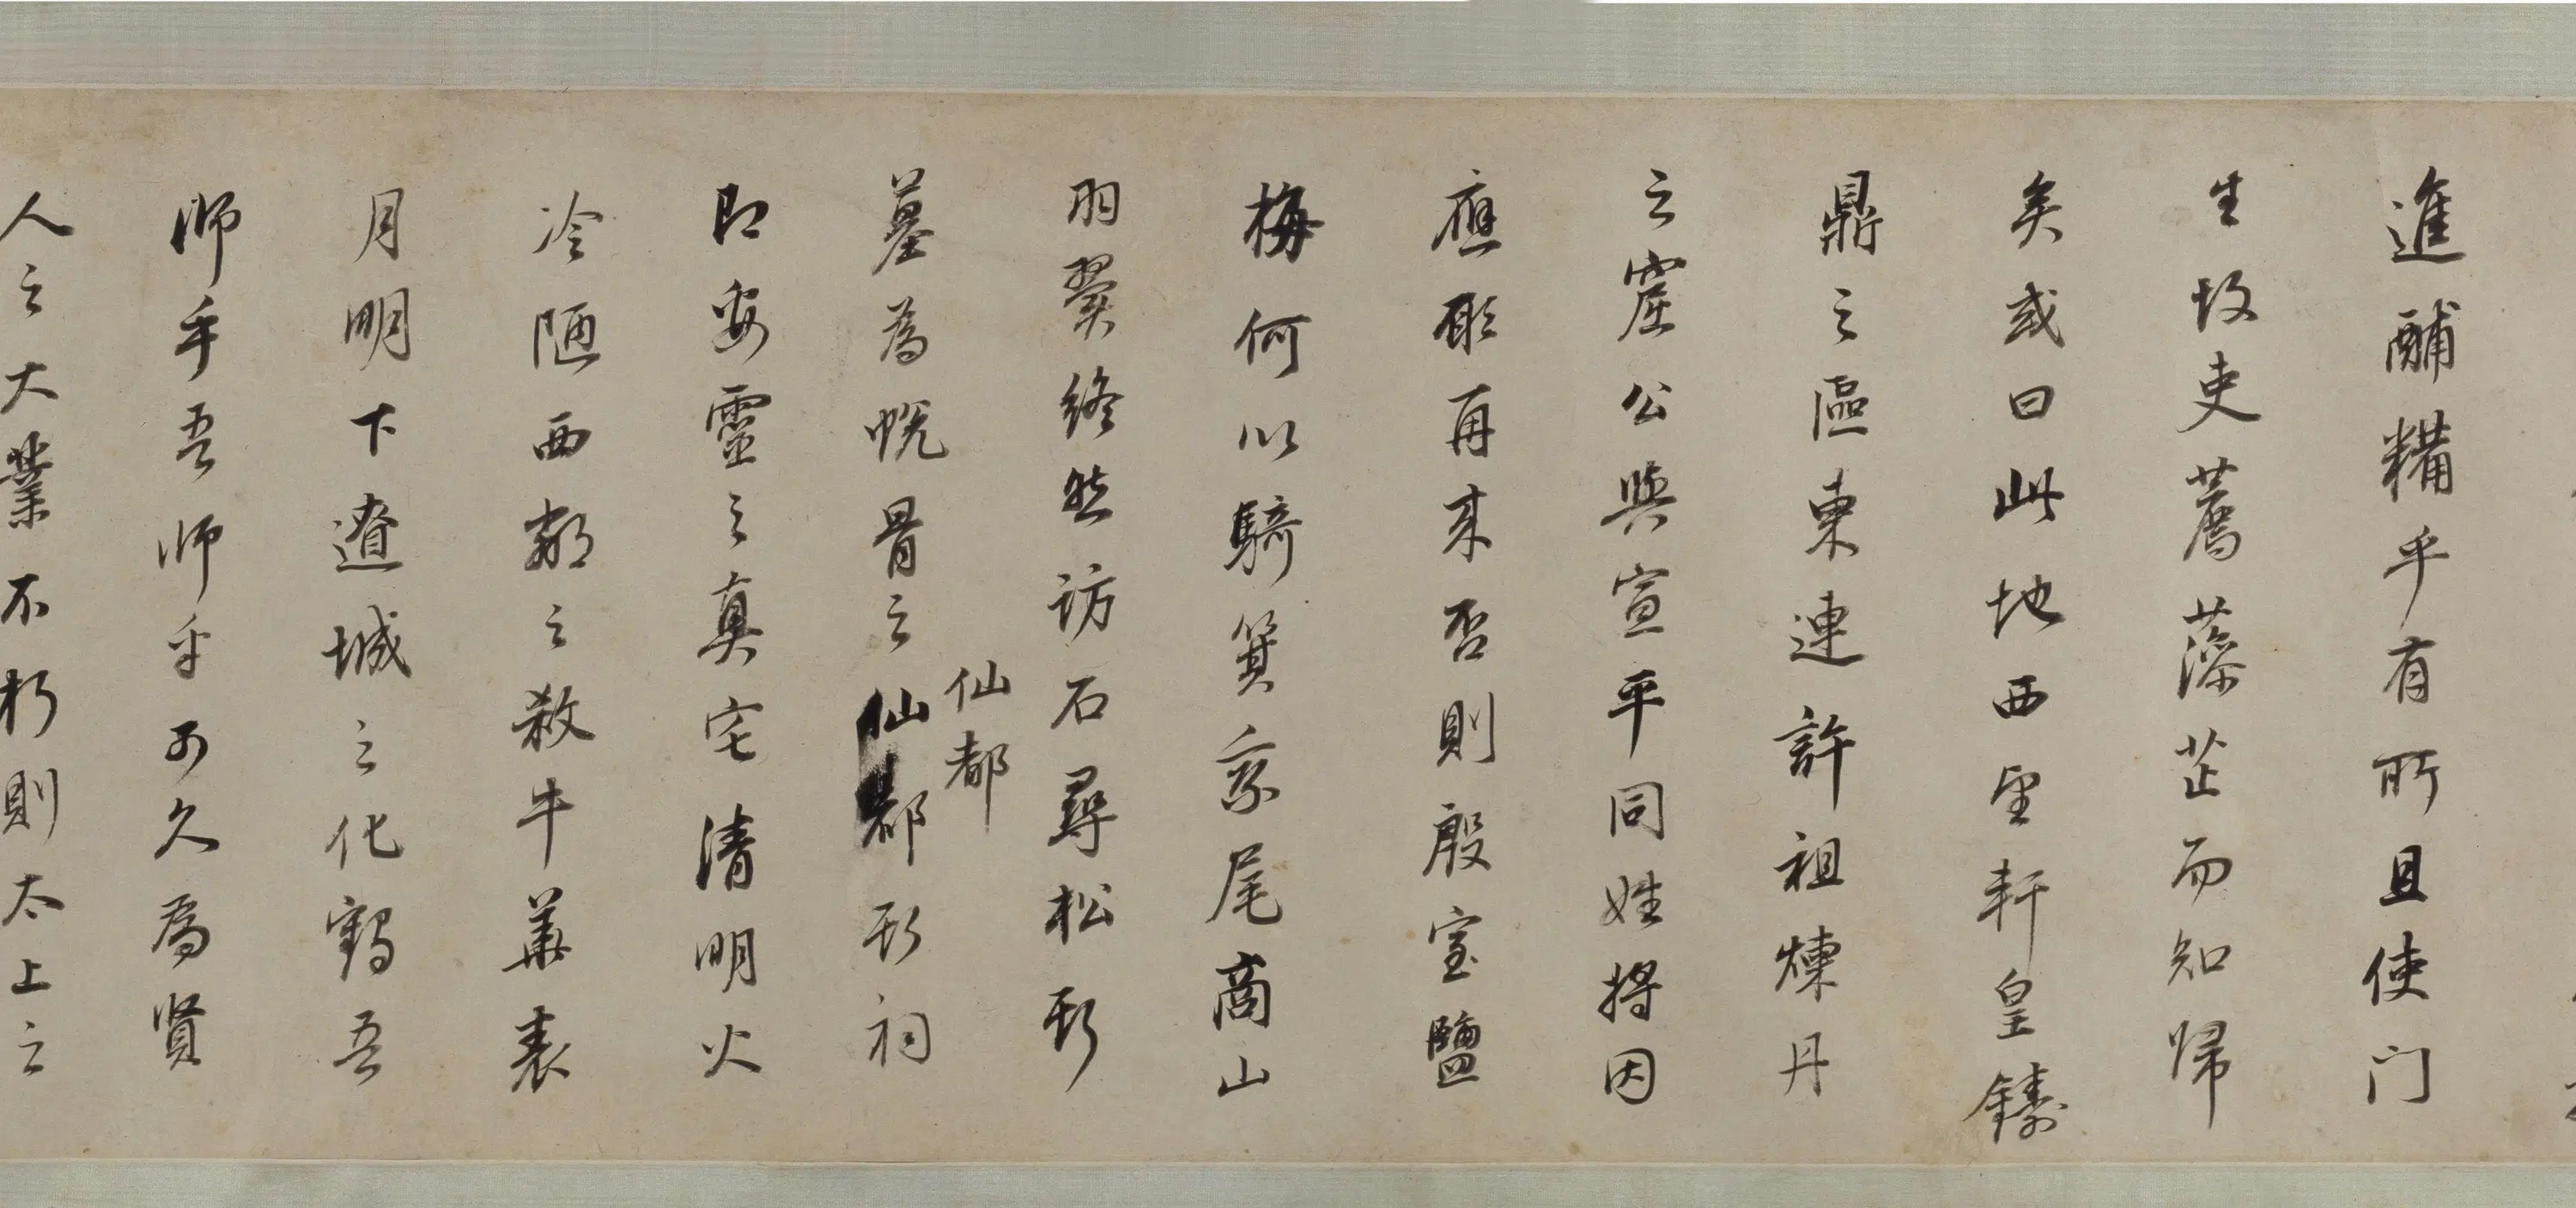 進酺糒乎有所且使门
生故吏薦藻芷而知歸
矣或曰此地西望軒皇鑄
鼎之區東連許祖煉丹
之窟公與宣平同姓將因
應願再来否則殷室鹽
梅何以騎箕系尾商山
羽翼終然訪石尋松斯
墓為悅骨之仙都斯祠
仙都
即安靈之真宅清明火
冷陋西鄰之殺牛華表
月明下遼城之化鶴吾
師乎吾師乎可久為賢
人之大業不朽則太上之